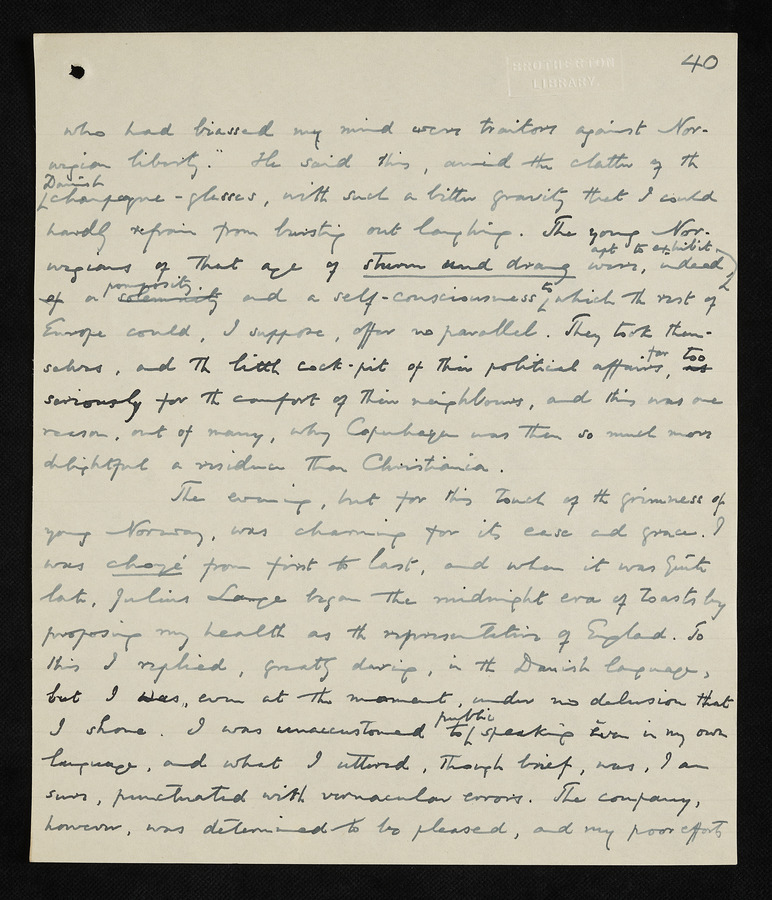 BROTHERTON
LIBRARY.
40
who had biassed my mind were traitors against Nor-
wegian liberty." He said this, amid the clatter of th
Danish
champagne-glasses, with such a bitter gravity that I could
hardly refrain from bursting out laughing. The young Nor-
apt to exhibit
wegians of that age of sturm und drang were, indeed,
pomposity
of a solemnity and a self-consciousness to which th rest of
Europe could, I suppose, offer no parallel. They took them-
far too
selves, and th little cock-pit of their political affairs, as
seriously for th comfort of their neighbours, and this was one
reason, out of many, why Copenhagen was then so much more
delightful a residence than Christiania.
The evening, but for this touch of th grimness of
young Norway, was charming for its ease and grace. I
was choyé from first to last, and when it was quite
late, Julius Lange began the midnight era of toasts by
proposing my health as th representative of England. To
this I replied, greatly daring, in th Danish language,
but I was, even at the moment, under no delusion that
public
I shone. I was unaccustomed to speaking even in my own
language, and what I uttered, though brief, was, I am
sure, punctuated with vernacular errors. The company,
however, was determined to be pleased, and my poor efforts